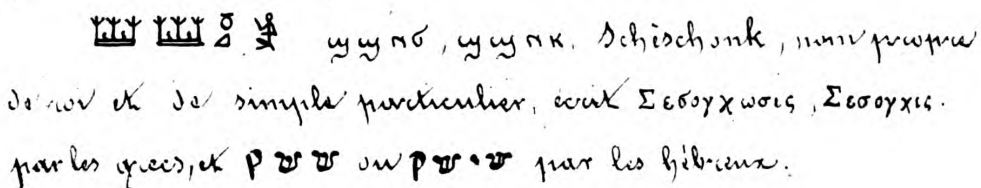 𓆷𓆷𓈎 ϣϣⲛϭ, ϣϣⲛⲕ. Schéschonk, nom propre
de roi et de simple particulier, écrit Σεσογχωσις, Σεσογχις.
par les grecs, et שׁשׁק ou שׁישׁק par les hébreux.